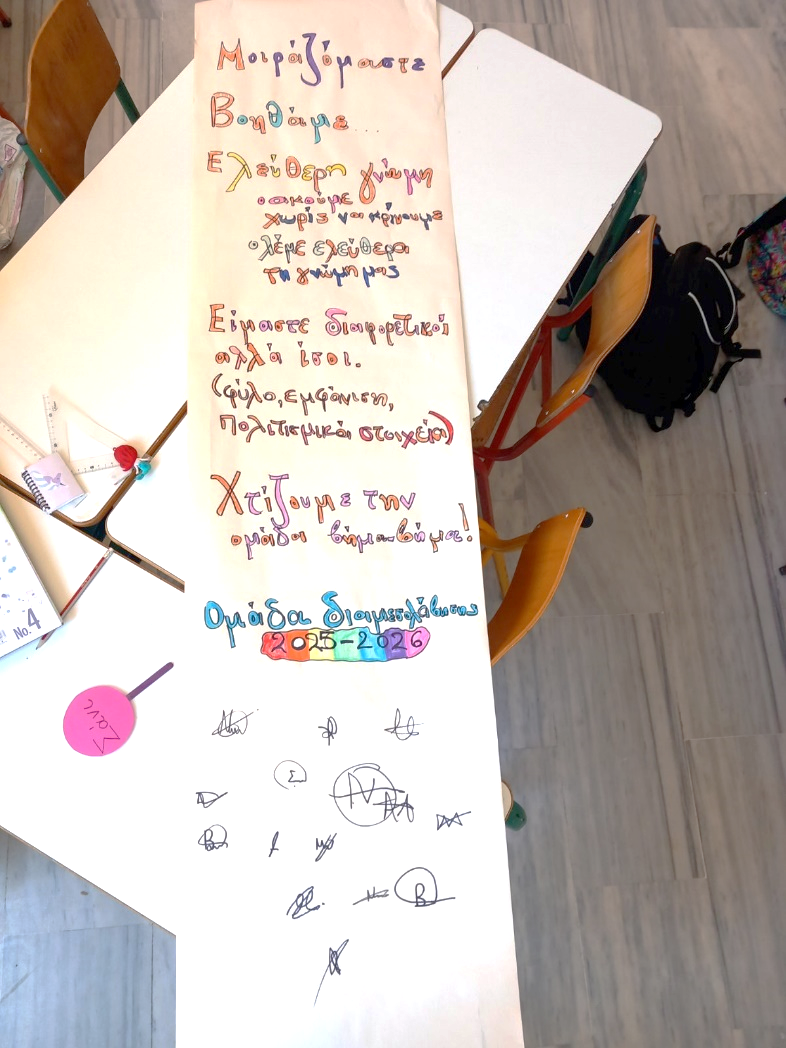 Μοιράζόμαστε
Βοηθάμε...
Ελεύθερη γνώμη
•ακούμε
χωρίς να κρίνουμε
•λέμε ελεύθερα
τη γνώμη μας
Είμαστε διαφορετικοί
αλλά ίσοι.
(φύλο, εμφάνιση,
πολιτισμικά στοιχεία)
Χτίζουμε την
ομάδα βήμα-βήμα!
Ομάδα διαμεσολάβησης
2025-2026
No.4